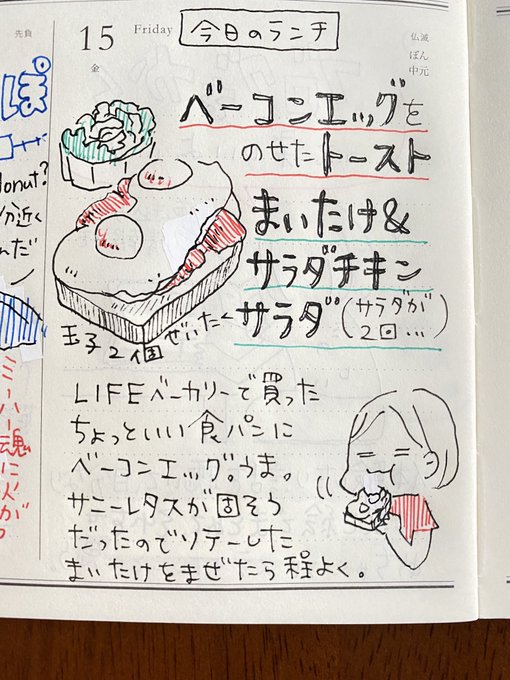 先負
15
Friday
金
今日のランチ
仏滅
ぼん
中元
ベーコンエッグを
のせたトースト
まいたけ&
サラダチキン
サラダ(サラダが
2回…)
玉子2個ぜいたく
LIFEベーカリーで買った
ちょっといい食パンに
ベーコンエッグ。うま。
サニーレタスが固そう
だったのでソテーした
まいたけをまぜたら程よく。
ぽ
donut?
分近く
んだ
ミーハー魂に火がつ